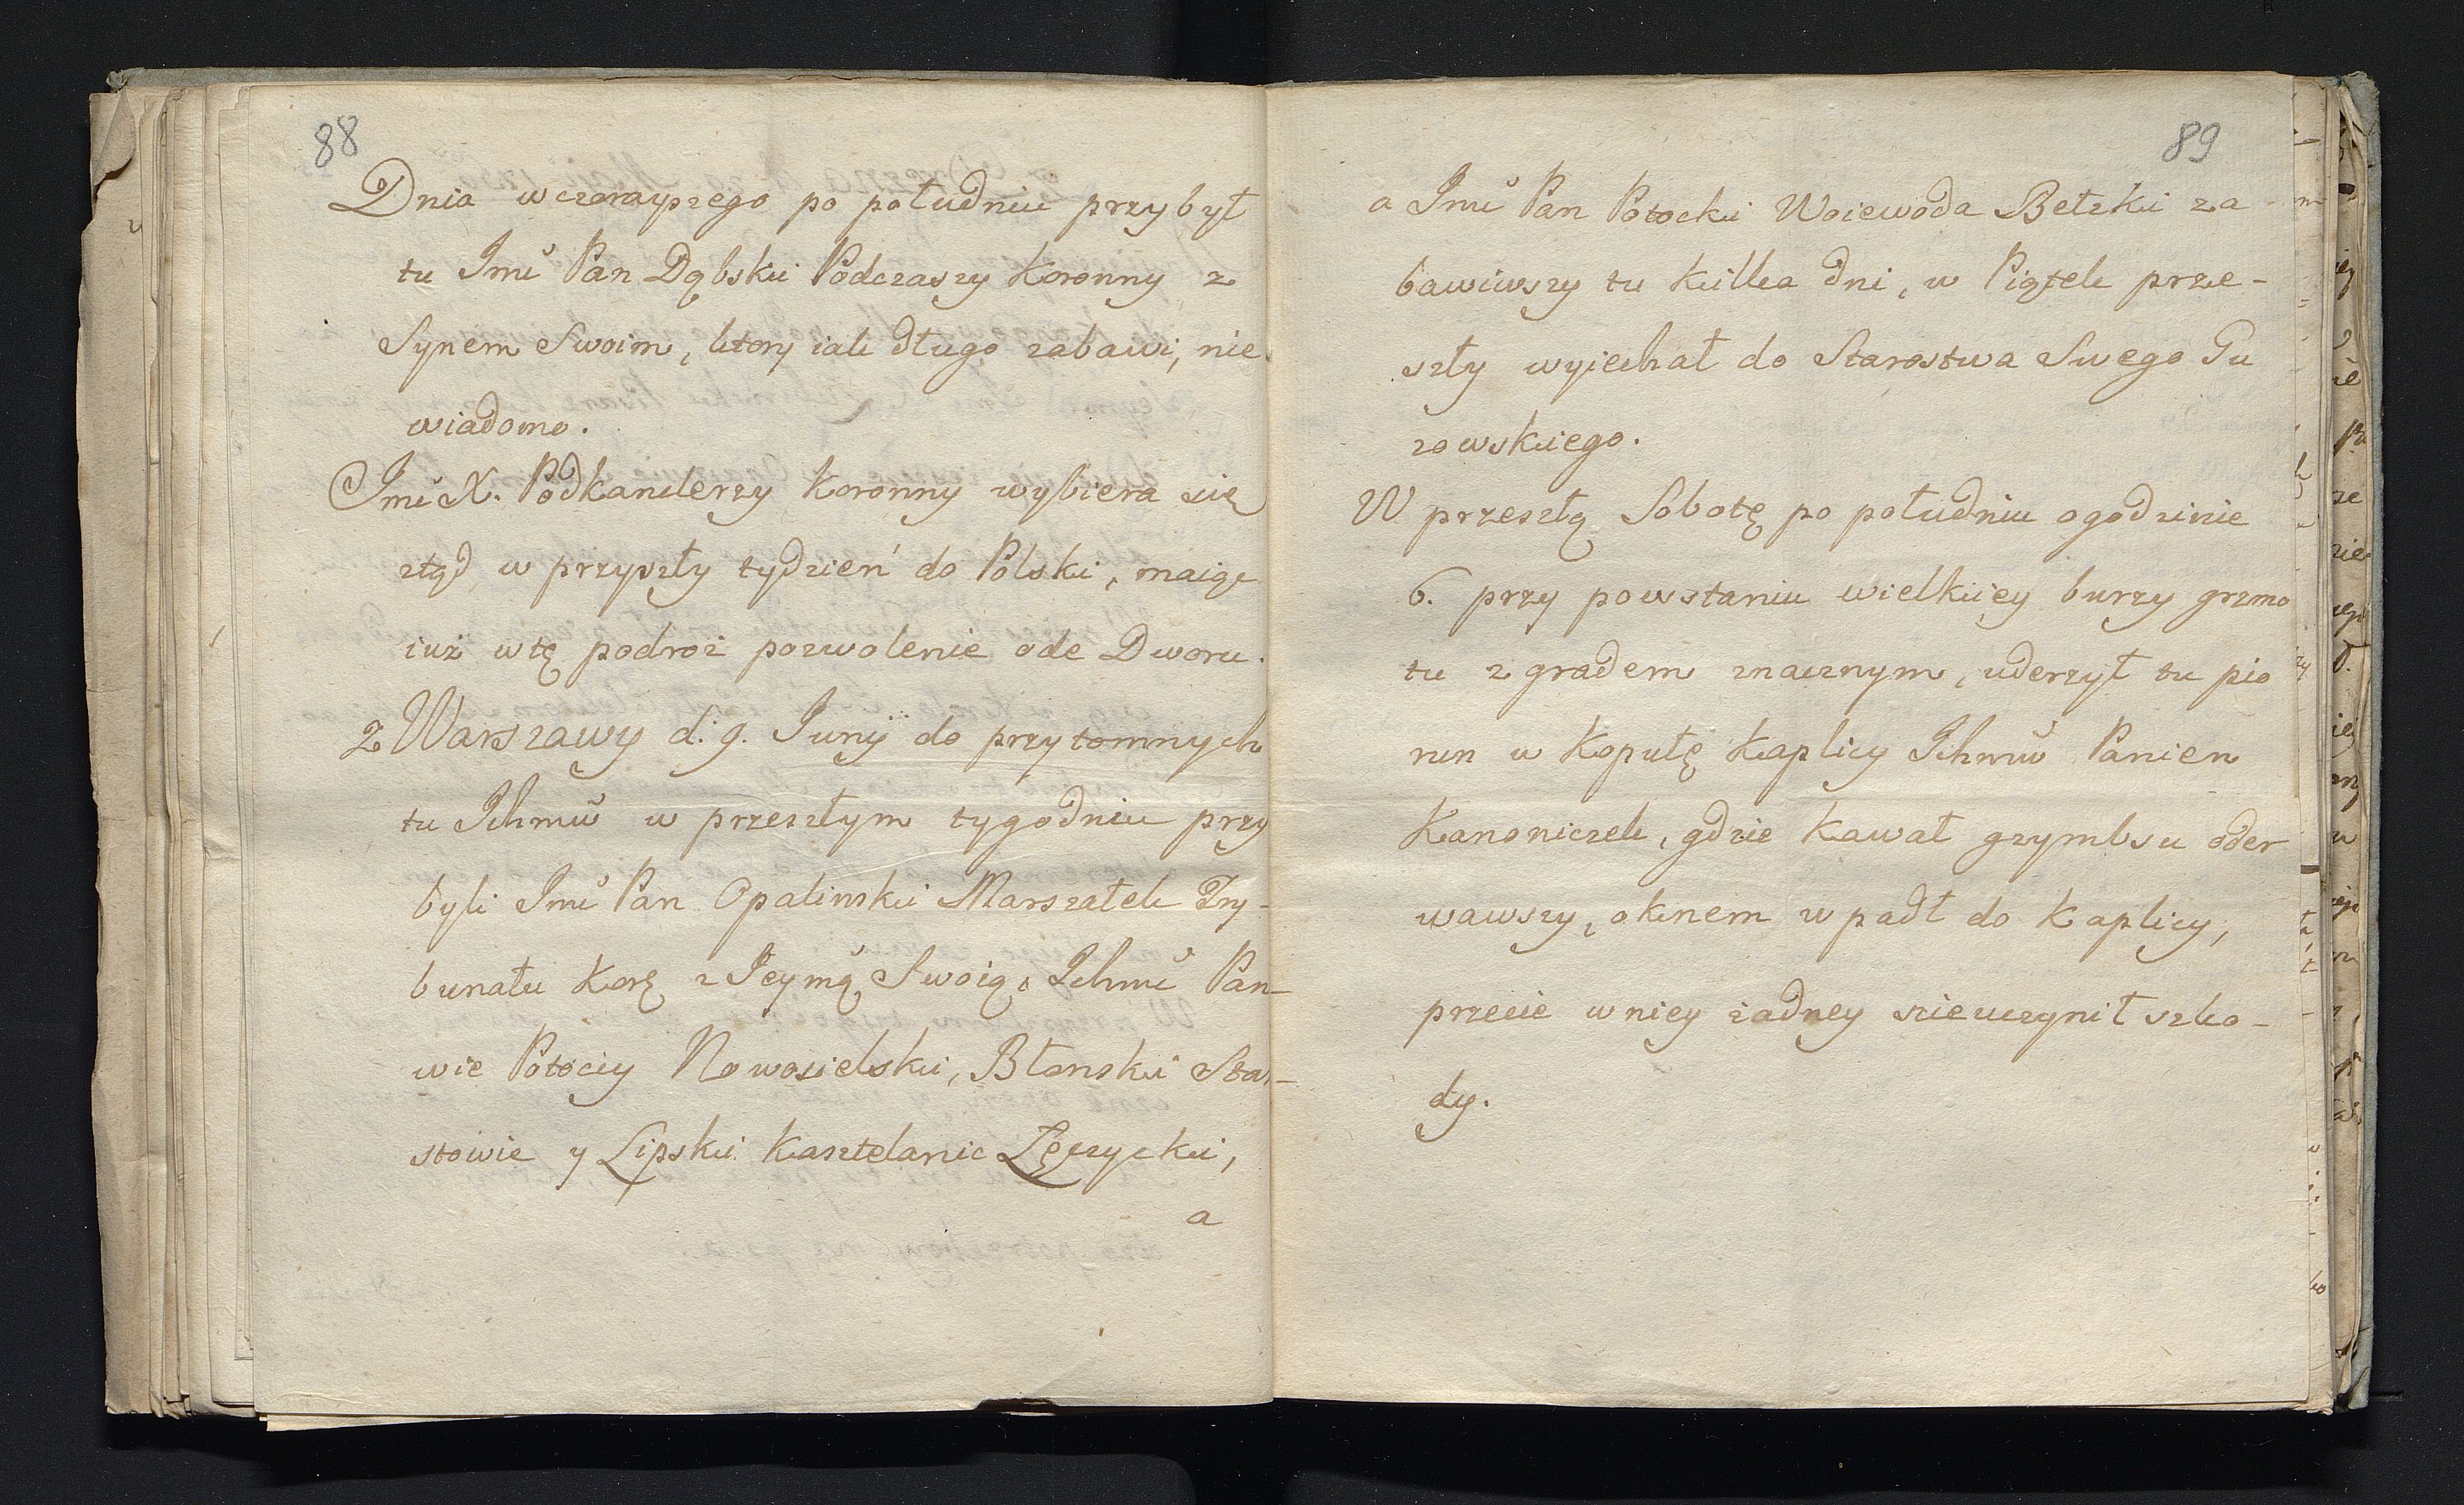 88
Dnia wczorayszego po południu przybył
tu Jmć Pan Dąbski Podczaszy Koronny z
Synem Swoim, ktory iak długo zabawi, nie
wiadomo.
Jmć X. Podkanclerzy Koronny wybiera się
ztąd w przyszły tydzień do Polski, maiąc
iuż wtę podroż pozwolenie ode Dworu.
Z Warszawy d: 9. Junÿ do przytomnych
tu Ichmw w przeszłym tygodniu przy
byli Jmć Pan Opalinski Marszałek Try-
bunału Korg z Jeymą Swoią, Ichmć Pan-
wie Potoccy Nowosielski, Błonski Star-
stowie y Lipski Kasztelanic Łęczycki,
a
89
a Jmć Pan Potocki Woiewoda Bełzki za
bawiwszy tu kilka dni, w Piątek prze-
szły wyiechał do Starostwa Swego Gu
zowskiego.
W przeszłą Sobotę po południu ogodzinie
6. przy powstaniu wielkiey burzy grzmo
tu z gradem znacznym, uderzył tu pio
run w Kopułę Kaplicy Ichmw Panien
Kanoniczek, gdzie kawał gzymbsu oder
wawszy, oknem wpadł do Kaplicy,
przecie wniey żadney nieuczynił szko-
dy.